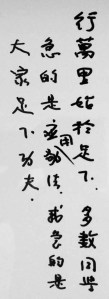 行萬里始於足下.多数同學
急的是用法.我急的是
大家足下功夫.